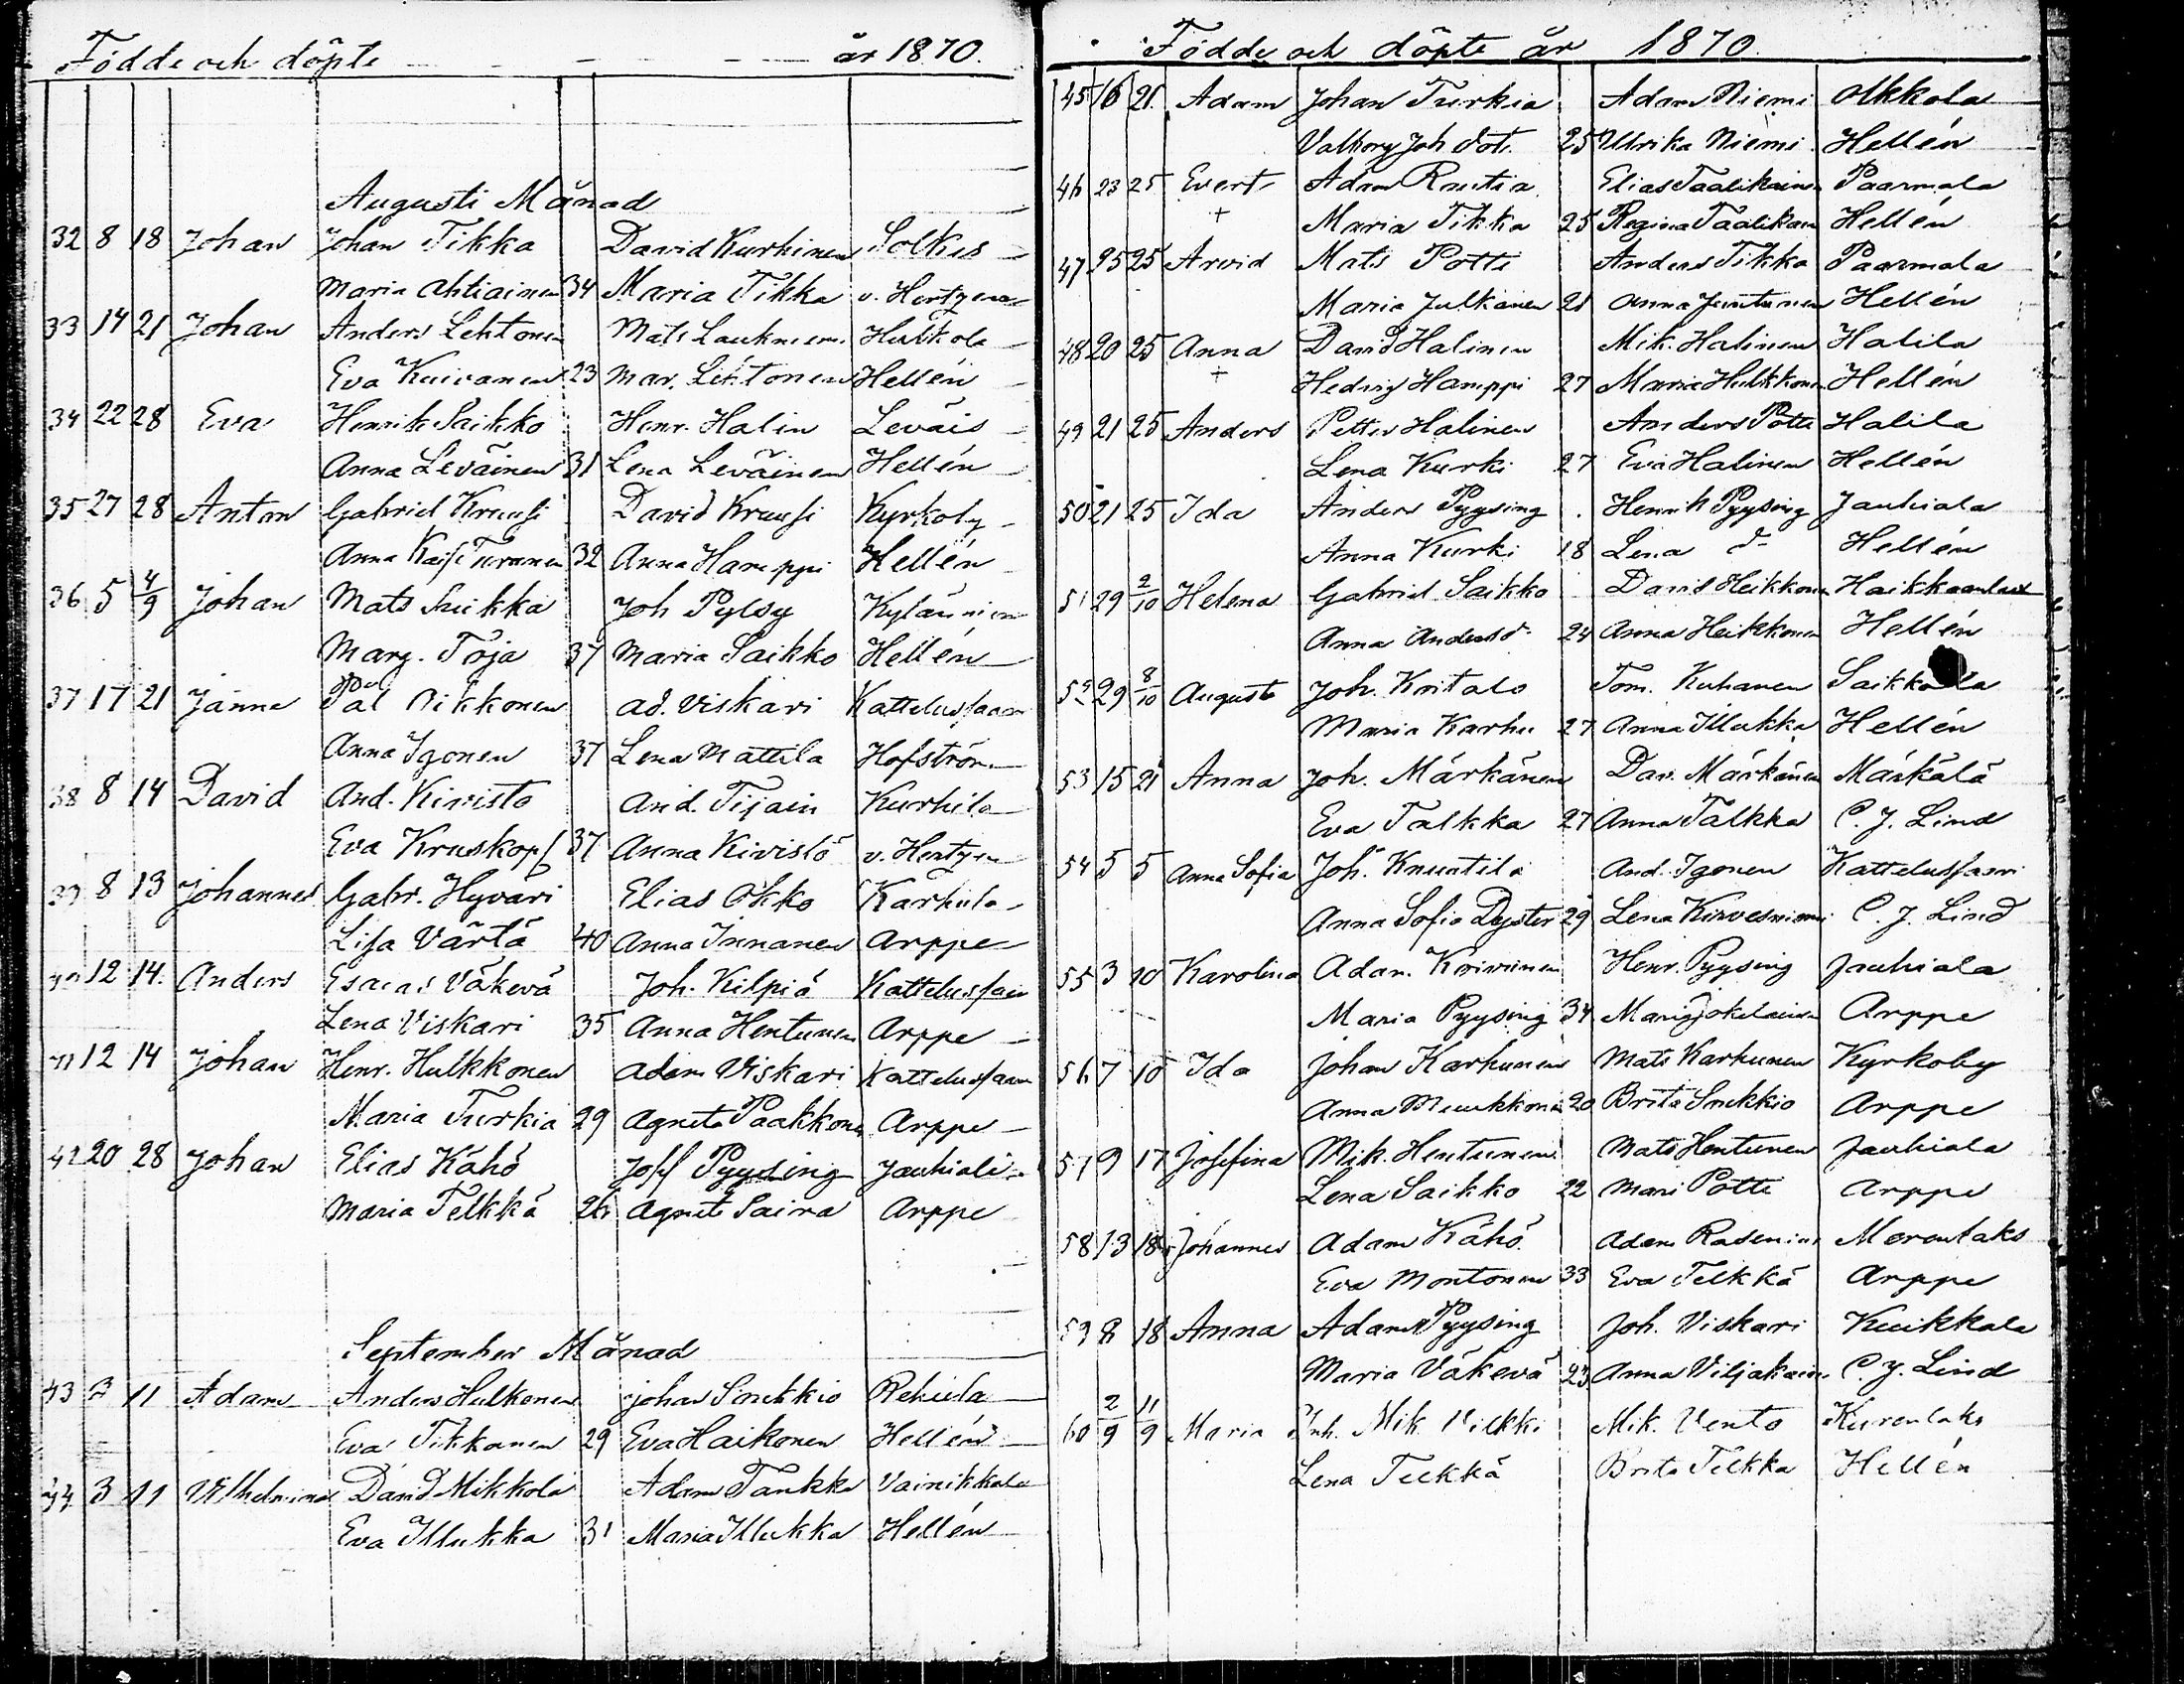 Födde och döpte år 1870.
Augusti Månad
32 8 18 Johan Johan Tikka David Kurhinen Solkis
Maria Ahtiainen 34 Maria Tikka v. Hertzen
33 14 21 Johan Anders Lehtonen Mats Laukniemi Hulkkola
Eva Kuivanen 23 Mar. Lehtonen Hellén
34 22 28 Eva Henrik Saikko Henr. Halin Leväis
Anna Leväinen 31 Lena Leväinen Hellén
35 27 28 Anton Gabriel Kruusi David Kruusi Kyrkoby
Anna Kaisa Turunen 32 Anna Hamppi Hellén
36 5 4/9 Johan Mats Suikka Joh Pylsy Kyläniem
Marg. Torja 37 Maria Saikko Hellén
37 17 21 Janne Pål Pikkonen Ad. Viskari Kattelussaari
Anna Igonen 37 Lena Mattila Hofström
38 8 14 David And. Kivistö And. Tijain Kurhila
Eva Kruskopf 37 Anna Kivistö v. Hertzen
39 8 13 Johannes Gabr. Hyvari Elias Okko Karhula
Lisa Värtä 40 Anna Innanen Arppe
40 12 14. Anders Esaias Väkevä Joh. Kilpiä Kattelussaari
Lena Viskari 35 Anna Hentunen Arppe
41 12 14 Johan Henr. Hulkkonen Adam Viskari Kattelussaari
Maria Turkia 29 Agneta Paakkonen Arppe
42 20 28 Johan Elias Kähö Josf Pyysing Jauhiala
Maria Telkkä 26 Agneta Saira Arppe
September Månad
43 3 11 Adam Anders Hulkonen Johan Smkkio Rekiela
Eva Tikkanen 29 Eva Haikonen Hellén
44 3 11 Vilhelmina David Mikkola Adam Taukka Vainikkala
Eva Illukka 31 Maria Illukka Hellén
Födde och döpte år 1870.
45 16 21. Adam Johan Turkia Adam Niemi Olkkola
Valborg Joh dot. 25 Ulrika Niemi Hellén
46 23 25 Evert Adam Ruutia Elias Taalikainen Paarmala
+ Maria Tikka 25 Regina Taalikain Hellén
47 25 25 Arvid Mats Potti Anders Tikka Paarmala
Maria Julkanen 21 Anna Juntunen Hellén
48 20 25 Anna David Halinen Mik. Halinen Halila
+ Hedvig Hamppi 27 Maria Hulkkonen Hellén
49 21 25 Anders Petter Halinen Anders Potti Halila
Lena Kurki 27 Eva Halinen Hellén
50 21 25 Ida Anders Pyysing Henrik Pyysing Jauhiala
Anna Kurki 18 Lena do Hellén
51 29 2/10 Helena Gabriel Saikko David Heikkonen Haikkaanlaks
Anna Andersd. 24 Anna Heikkonen Hellén
52 29 8/10 August Joh. Kritalo Tom. Kuhanen Saikkola
Maria Karhu 27 Anna Illukka Hellén
53 15 21 Anna Joh. Märkänen Dav. Märkänen Märkälä
Eva Talkka 27 Anna Talkka C. J. Lind
54 5 5 Anna Sofia Joh. Knuutila And. Igonen Kattelussaari
Anna Sofia Dyster 29 Lena Kirvesniemi C. J. Lind
55 3 10 Karolina Adam Koivunen Henr. Pyysing Jauhiala
Maria Pyysing 34 Maria Jokelainen Arppe
56 7 10 Ida Johan Karhunen Mats Karhunen Kyrkoby
Anna Muukkonen 20 Brita Smkkio Arppe
57 9 17 Josefina Mik. Hentunen Mats Hentunen Jauhiala
Lena Saikko 22 Mari Potti Arppe
58 13 18 Johannes Adam Kähö Adam Rasenius Merenlaks
Eva Montonen 33 Eva Telkkä Arppe
59 8 18 Anna Adam Pyysing Joh. Viskari Kuikkala
Maria Väkevä 23 Anna Viljakain C. J. Lind
60 2/9 11/9 Maria Inh. Mik Vilkki Mik. Vento Kurenlaks
Lena Telkkä Brita Telkka Hellén